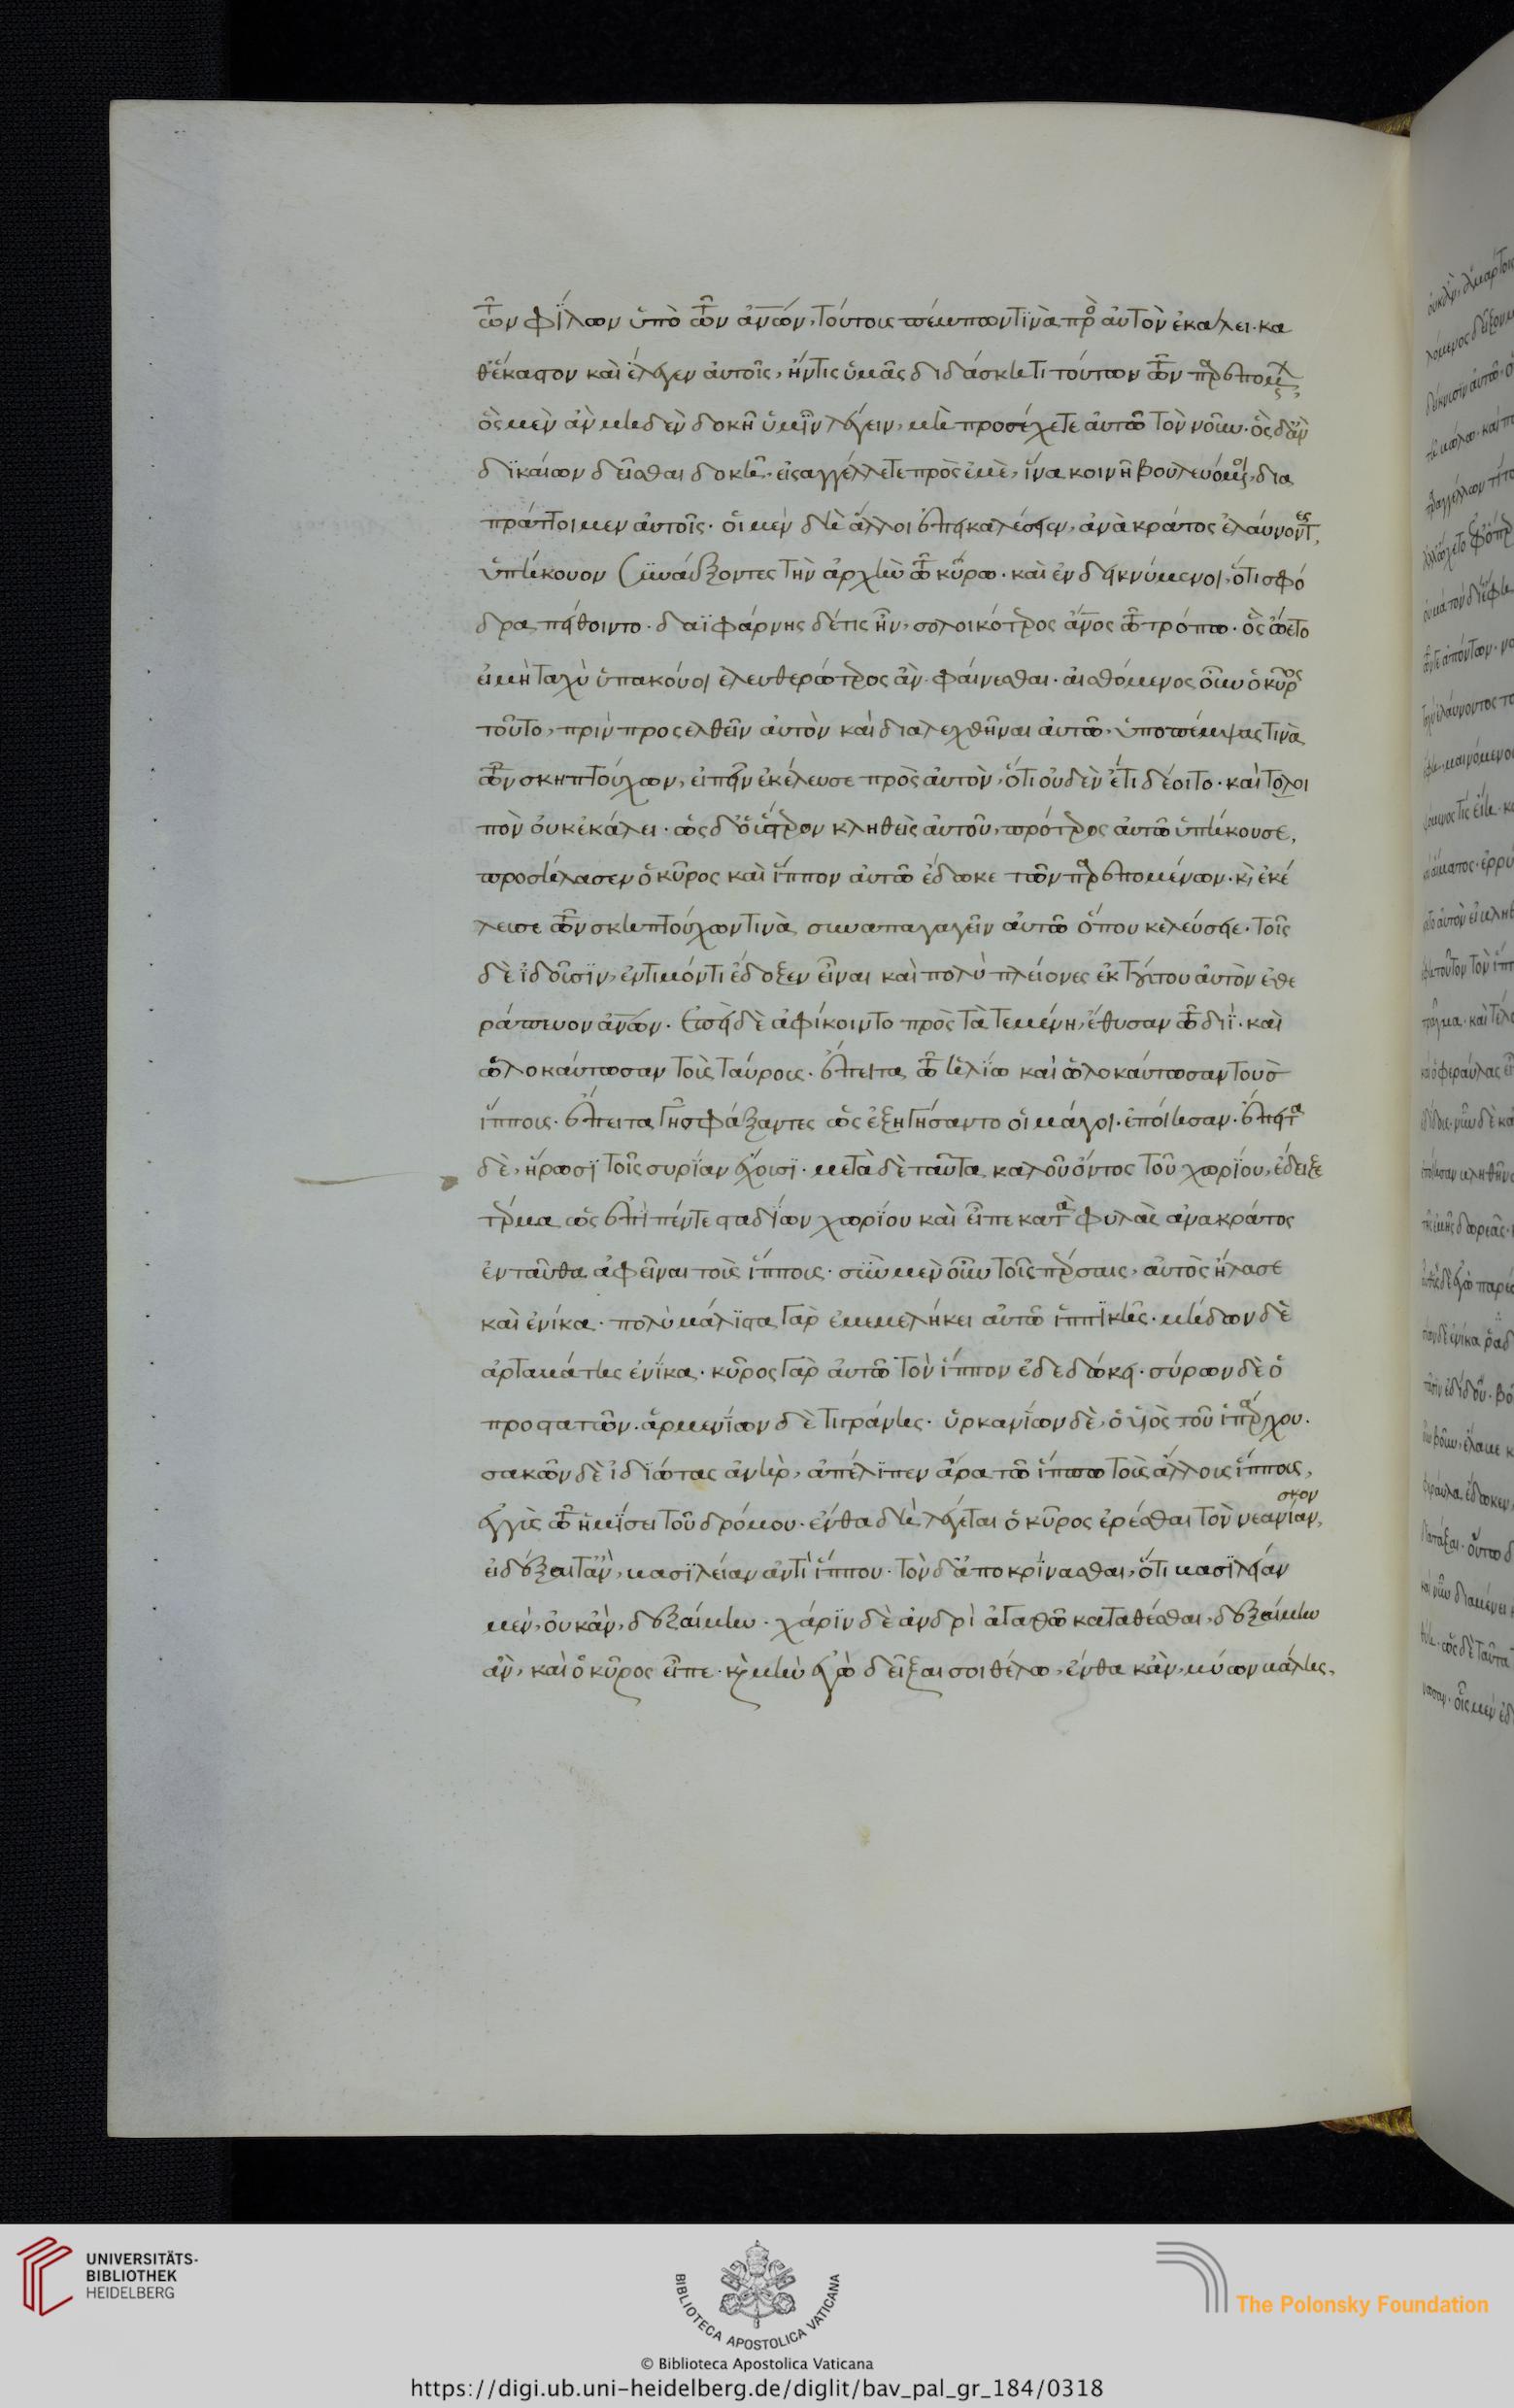 τῶν φίλων ὑπὸ τῶν ἀνῶν, τούτοις πέμπων τινὰ πρὸ αὐτὸν ἐκάλει· κα
θέκαστον καὶ ἔλεγεν αὐτοῖς, ἤν τις ὑμᾶς διδάσκη τι τούτων τῶν παρεπομ
ὃς μὲν ἂν μηδὲν δοκῆ ὑμῖν λέγειν, μὴ προσέχετε αὐτῶ τὸν νοῦν· ὃς δ' ἂν
δικαίων δεῖσθαι δοκῆ· εἰσαγγέλλετε πρὸς ἐμὲ, ἵνα κοινῆ βουλευόμοι, δια
πράττοιμεν αὐτοῖς· οἱ μὲν δὴ ἄλλοι ἐπεὶ καλέσειεν, ἀνὰ κράτος ἐλαύνοντες,
ὑπήκουον συναύξοντες τὴν ἀρχὴν τῶ κύρω· καὶ ἐνδεικνύμενοι, ὅτι σφό
δρα πείθοιντο· δαϊφάρνης δέ τις ἦν, σολοικότερος ἄνος τῶ τρόπω· ὃς ὤετο
εἰ μὴ ταχὺ ὑπακούοι ἐλευθερώτερος ἂν φαίνεσθαι· αἰσθόμενος οὖν ὁ κῦρος
τοῦτο, πρὶν προσελθεῖν αὐτὸν καὶ διαλεχθῆναι αὐτῶ, ὑποπέμψας τινὰ
τῶν σκηπτούχων, εἰπεῖν ἐκέλευσε πρὸς αὐτὸν, ὅτι οὐδὲν ἔτι δέοιτο· καὶ τολοι
πὸν οὐκ ἐκάλει· ὡς δ' ὁ ὕστερον κληθεὶς αὐτοῦ, πρότερος αὐτῶ ὑπήκουσε,
προσήλασεν ὁ κῦρος καὶ ἵππον αὐτῶ ἔδωκε τῶν παρεπομένων· κ, ἐκέ
λευσε τῶν σκηπτούχων τινὰ συναπαγαγεῖν αὐτῶ ὅπου κελεύσειε· τοῖς
δὲ ἰδοῦσιν, ἔντιμόν τι ἔδοξεν εἶναι καὶ πολὺ πλείονες ἐκ τούτου αὐτὸν ἐθε
ράπευον ἀνῶν· Ἐπεὶ δὲ ἀφίκοιντο πρὸς τὰ τεμένη, ἔθυσαν τῶ διῒ· καὶ
ὡλοκαύτωσαν τοὺς ταύρους· ἔπειτα τῶ ἡλίω καὶ ὡλοκαύτωσαν τοὺσ
ἵππους· ἔπειτα γῆ σφάξαντες ὡς ἐξηγήσαντο οἱ μάγοι· ἐποίησαν· ἔπειτα
δὲ, ἥρωσι τοῖς συρίαν ἔχουσι· μετὰ δὲ ταῦτα καλοῦ ὄντος τοῦ χωρίου, ἔδειξε
τέρμα ὡς ἐπὶ πέντε σταδίων χωρίου καὶ εἶπε κατὰ φυλὰς ἀνακράτος
ἐνταῦθα ἀφεῖναι τοὺς ἵππους· σὺν μὲν οὖν τοῖς πέρσαις, αὐτὸς ἤλασε
καὶ ἐνίκα· πολὺ μάλιστα γὰρ ἐμεμελήκει αὐτῶ ἱππικῆς· μήδων δὲ
ἀρταμάτης ἐνίκα· κῦρος γὰρ αὐτῶ τὸν ἵππον ἐδεδώκει· σύρων δὲ ὁ
προστατῶν· ἀρμενίων δὲ τιγράνης· ὑρκανίων δὲ, ὁ υἱὸς τοῦ ἱππάρχου·
σακῶν δὲ ἰδιώτας ἀνὴρ, ἀπέλιπεν ἄρα τῶ ἵππω τοὺς ἄλλους ἵππους,
ἐγγὺς τῶ ἡμίσει τοῦ δρόμου· ἔνθα δὴ λέγεται ὁ κῦρος ἐρέσθαι τὸν νεανίαν σκον,
εἰ δέξαιτ' ἂν, βασιλείαν ἀντὶ ἵππου· τὸν δ' ἀποκρίνασθαι, ὅτι βασιλείαν
μὲν, οὐκ ἂν, δεξαίμην· χάριν δὲ ἀνδρὶ ἀγαθῶ καταθέσθαι, δεξαίμην
ἂν, καὶ ὁ κῦρος εἶπε· κ μὴν ἐγὼ δεῖξαι σοι θέλω, ἔνθα κἂν, μύων βάλης,
UNIVERSITÄTS-
BIBLIOTHEK
HEIDELBERG
BIBLIOTECA APOSTOLICA VATICANA
© Biblioteca Apostolica Vaticana
The Polonsky Foundation
https://digi.ub.uni-heidelberg.de/diglit/bav_pal_gr_184/0318